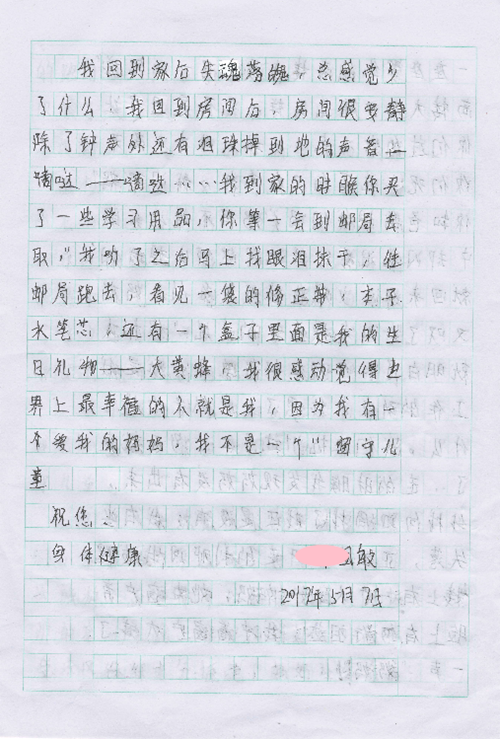 我回到家后失魂落魄，总感觉少
了什么 我回到房间后，房间很安静
除了钟声外还有泪珠掉到地的声音——
嘀哒——嘀哒……我到家的时候你买
了一些学习用品，你等一会到邮局去
取，”我听了之后马上找眼泪抹干，往
邮局跑去，看见一袋的修正带，本子
水笔芯，还有一个盒子里面是我的生
日礼物——大黄蜂，我很感动觉得世
界上最幸福的人就是我，因为我有一
个爱我的妈妈，我不是一个“留守儿
童
祝您：
身体健康 敏
2017年5月7日